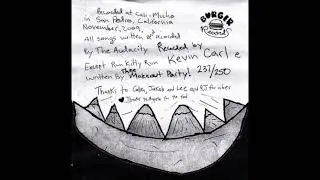 Recorded at Cali-Mucho
in San Pedro, California
November, 2009.
All songs written & recorded
By The Audacity Recorded by
Kevin Carle
Except Run Kitty Run
written By Thee Makeout Party! 237/250
Thanks to Jacob and Lee and for
for the
BURGER
Records